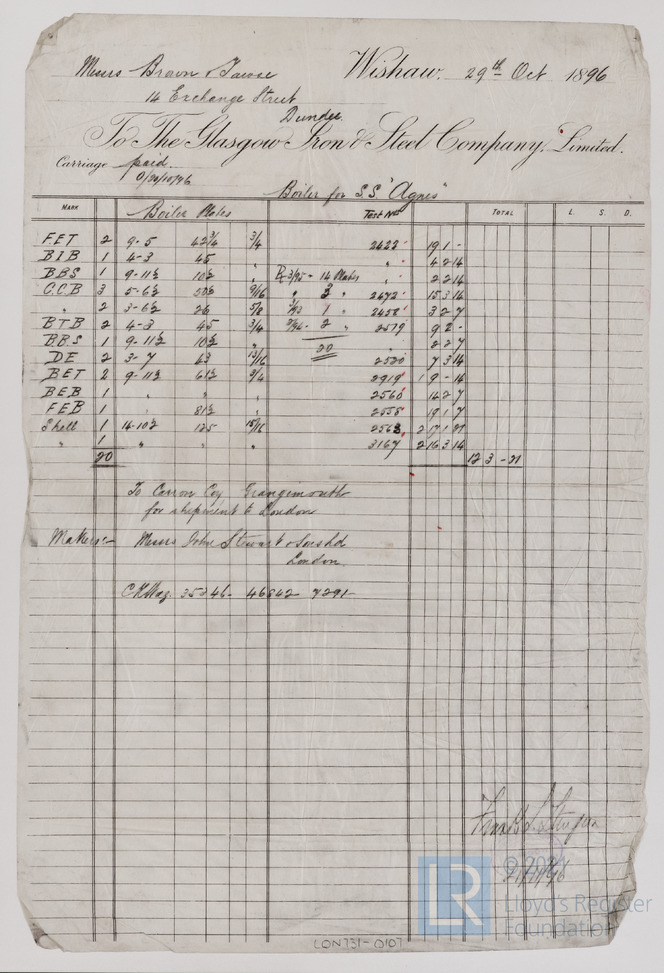 Messrs Brown & Tawse Wishaw. 29th Oct 1896
14 Exchange Street
Dundee.
To The Glasgow Iron & Steel Company, Limited.
Carriage paid
Boiler for S.S. "Agnes"
MARK Boiler Plates Test Nos TOTAL L. S. D.
F.E.T 2 9-5 42 3/4 3/4 2422 19 1 -
B I B 1 4-3 45 " " 4 2 14
B B S 1 9-11½ 10½ " 3/95 - 14 Plates " 2 2 14
C.C.B 3 5-6½ 50½ 9/16 " 3 " 2472 15 3 14
" 2 3-6½ 26 5/8 1 " 2458 3 2 7
B T B 2 4-3 45 3/4 2 " 2579 9 2 -
B B S 1 9-11½ 10½ " 20 " 2 2 7
D E 2 3-7 43 13/16 2520 7 3 14
B E T 2 9-11½ 61½ 3/4 2919 1 9 - 14
B E B 1 " " " 2560 14 2 7
F E B 1 " 81½ " 2555 19 1 7
Shell 1 14-10½ 125 15/16 2563 2 17 1 21
" 1 " " " 3167 2 16 3 14
20 12 3 - 21
To Carron Coy Grangemouth
for shipment to London
Makers Messrs John Stewart & Son Ltd
London.
35246- 46842 7291-
LON731-0107
LR
© 2021
Lloyd's Register
Foundation